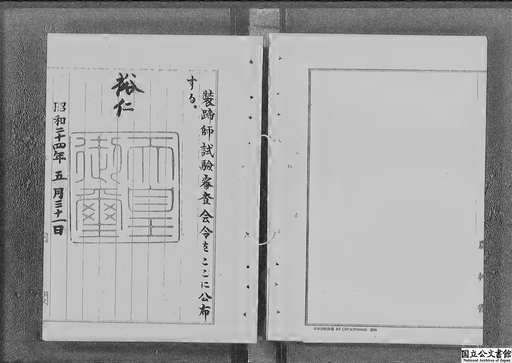 装蹄師試験審査会令をここに公布
する。
裕仁
天皇
御璽
昭和二十四年五月三十一日
内閣
農林省
国立公文書館
National Archives of Japan